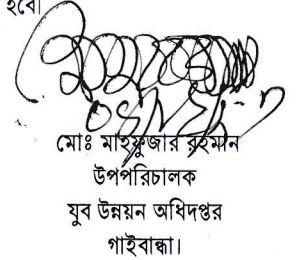 হবে।
মোঃ মাহফুজার রহমান
উপপরিচালক
যুব উন্নয়ন অধিদপ্তর
গাইবান্ধা।